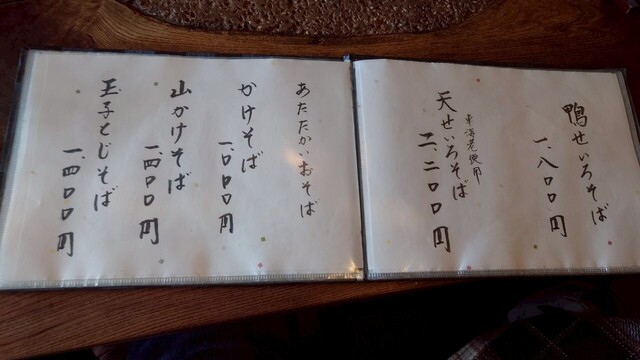 鴨せいろそば
一、八〇〇円
天せいろそば
車海老使用
二、二〇〇円
あたたかいおそば
かけそば
一、〇〇〇円
山かけそば
一、四〇〇円
玉子とじそば
一、四〇〇円